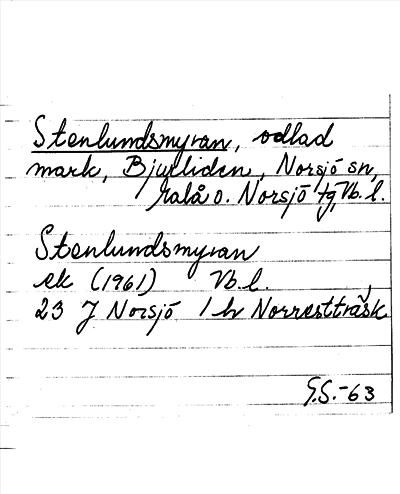 Stenlundsmyran, odlad
mark, Bjurliden, Norsjö sn,
Malå o. Norsjö tg, Vb. l.
Stenlundsmyran
ek (1961) Vb. l.
23 J Norsjö 1 h Norresträsk
G.S.-63